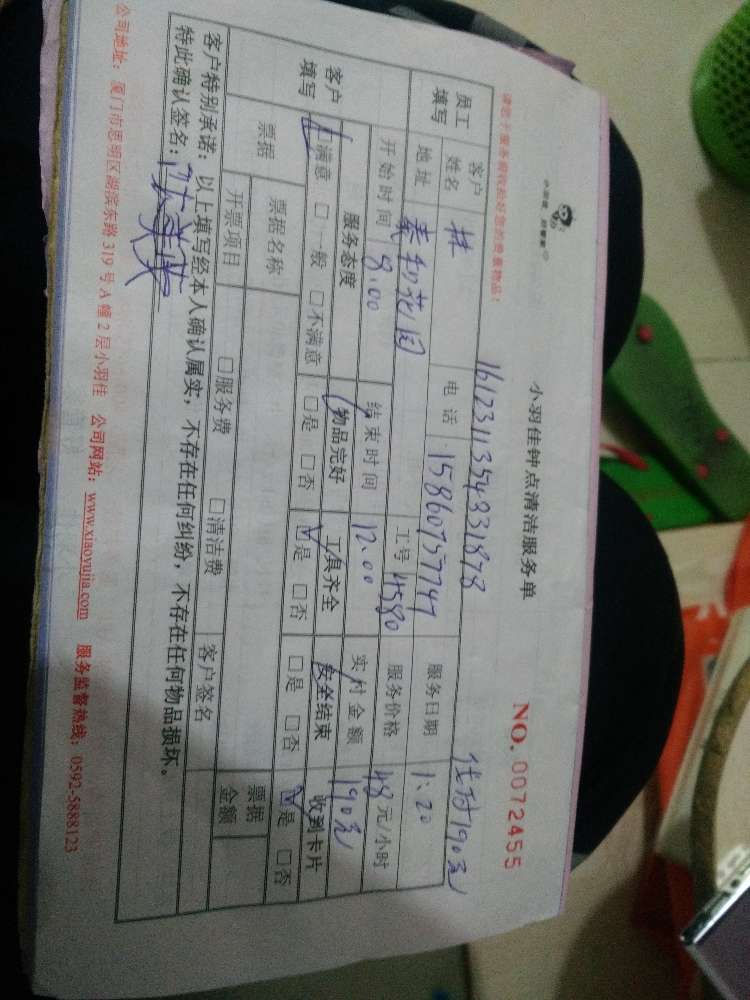 小羽佳钟点清洁服务单
NO. 0072455
1612311354331878
请您十分贵重物品!
员工填写 客户姓名 林 电话 15860757747 服务日期 1.20
地址 泰和花园 工号 4580 服务价格 48元/小时
开始时间 8.00 结束时间 12.00 实付金额 190元
客户填写 服务态度 物品完好 工具齐全 安全结束 收到卡片
☑满意 □一般 □不满意 □是 □否 ☑是 □否 □是 □否 ☑是 □否
票据 票据名称 客户签名 票据金额
开票项目 □服务费 □清洁费
客户特别承诺:以上填写经本人确认属实,不存在任何纠纷,不存在任何物品损坏。
特此确认签名:
公司地址:厦门市思明区湖滨东路319号A幢2层小羽佳 公司网站:www.xiaoyujia.com 服务监督热线:0592-5888123